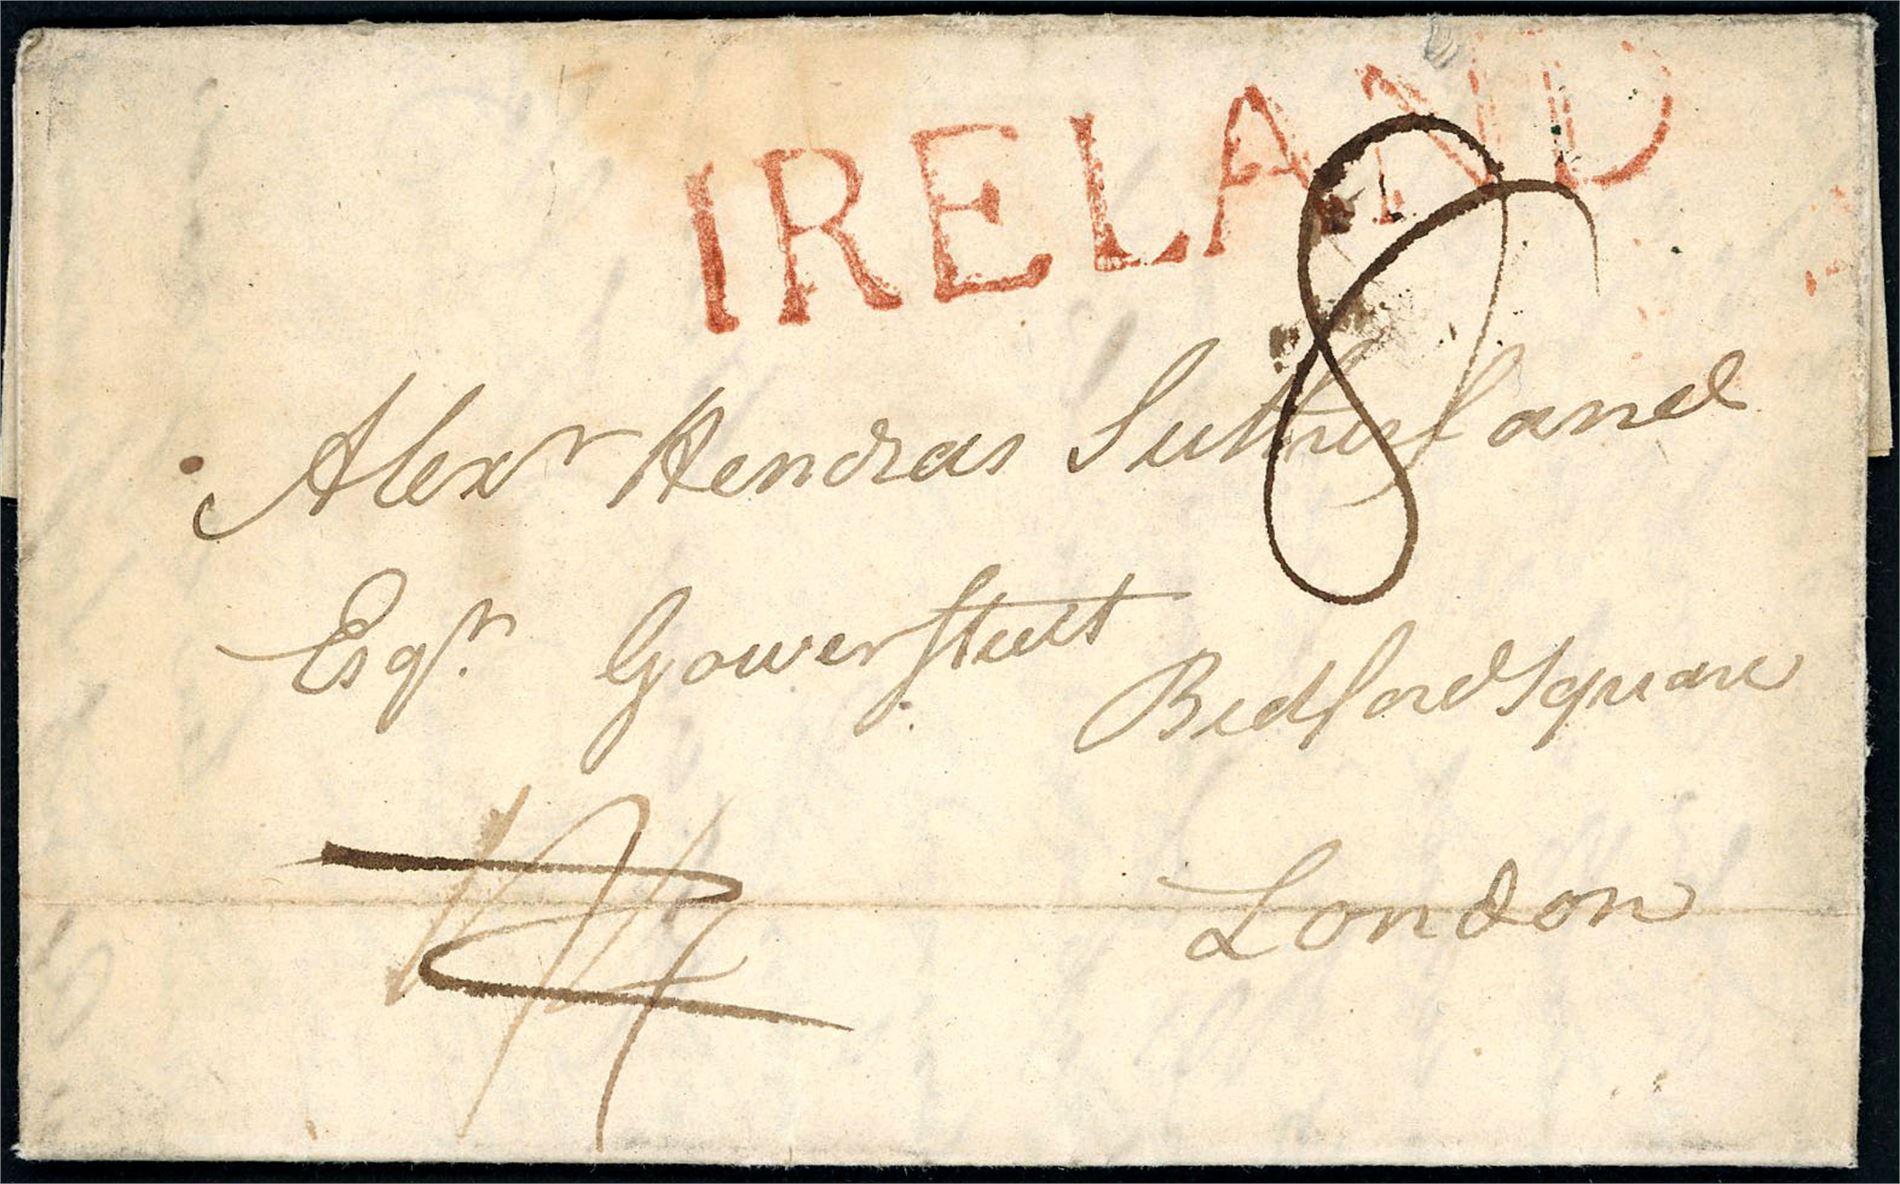 IRELAND
8
Alexr Hendras Sutherland
Esqr. Gower Street
Bedford Square
London